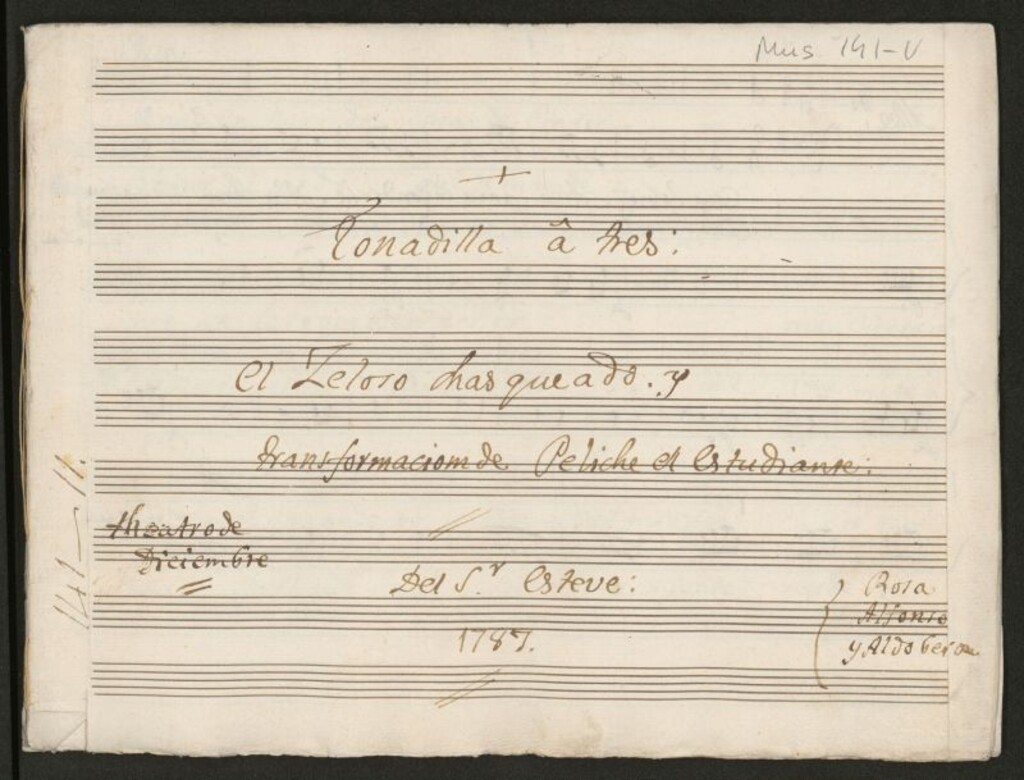 Mus 191-V
+
Tonadilla â tres:
el Zeloso chasqueado. y
transformaciom de Peliche el estudiante:
theatro de
Diciembre
Del S.r Esteve:
1787.
Rosa
Alfonso
y Aldobera